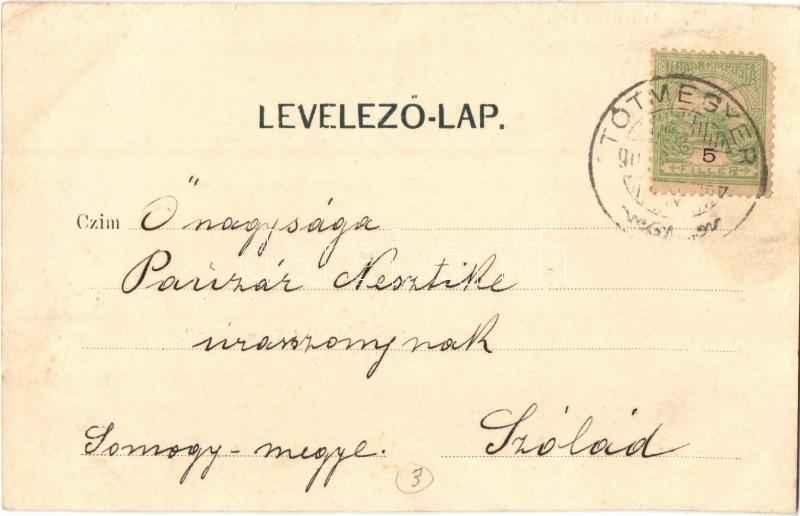 LEVELEZŐ-LAP.
MAGYAR KIR. POSTA
TÓTMEGYER
5
FILLÉR
Czim Ő nagysága
Párizár Nesztike
úrasszonynak
Somogy-megye. Szólád
3